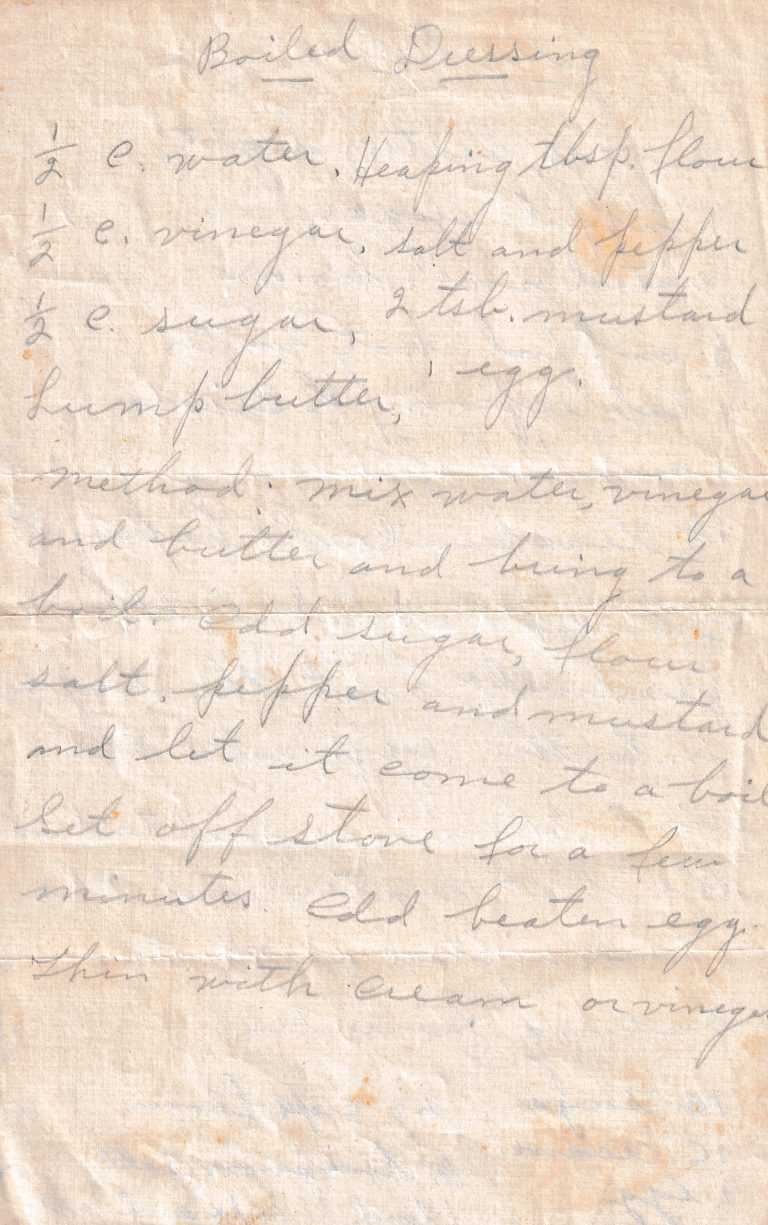 Boiled Dressing
½ c. water, Heaping tbsp. flour
½ c. vinegar, salt and pepper
½ c. sugar, 2 tsb. mustard
Lump butter, 1 egg.
Method: Mix water, vinegar
and butter and bring to a
boil. Add sugar, flour
salt, pepper and mustard
and let it come to a boil
Set off stove for a few
minutes. Add beaten egg.
Thin with cream or vinegar